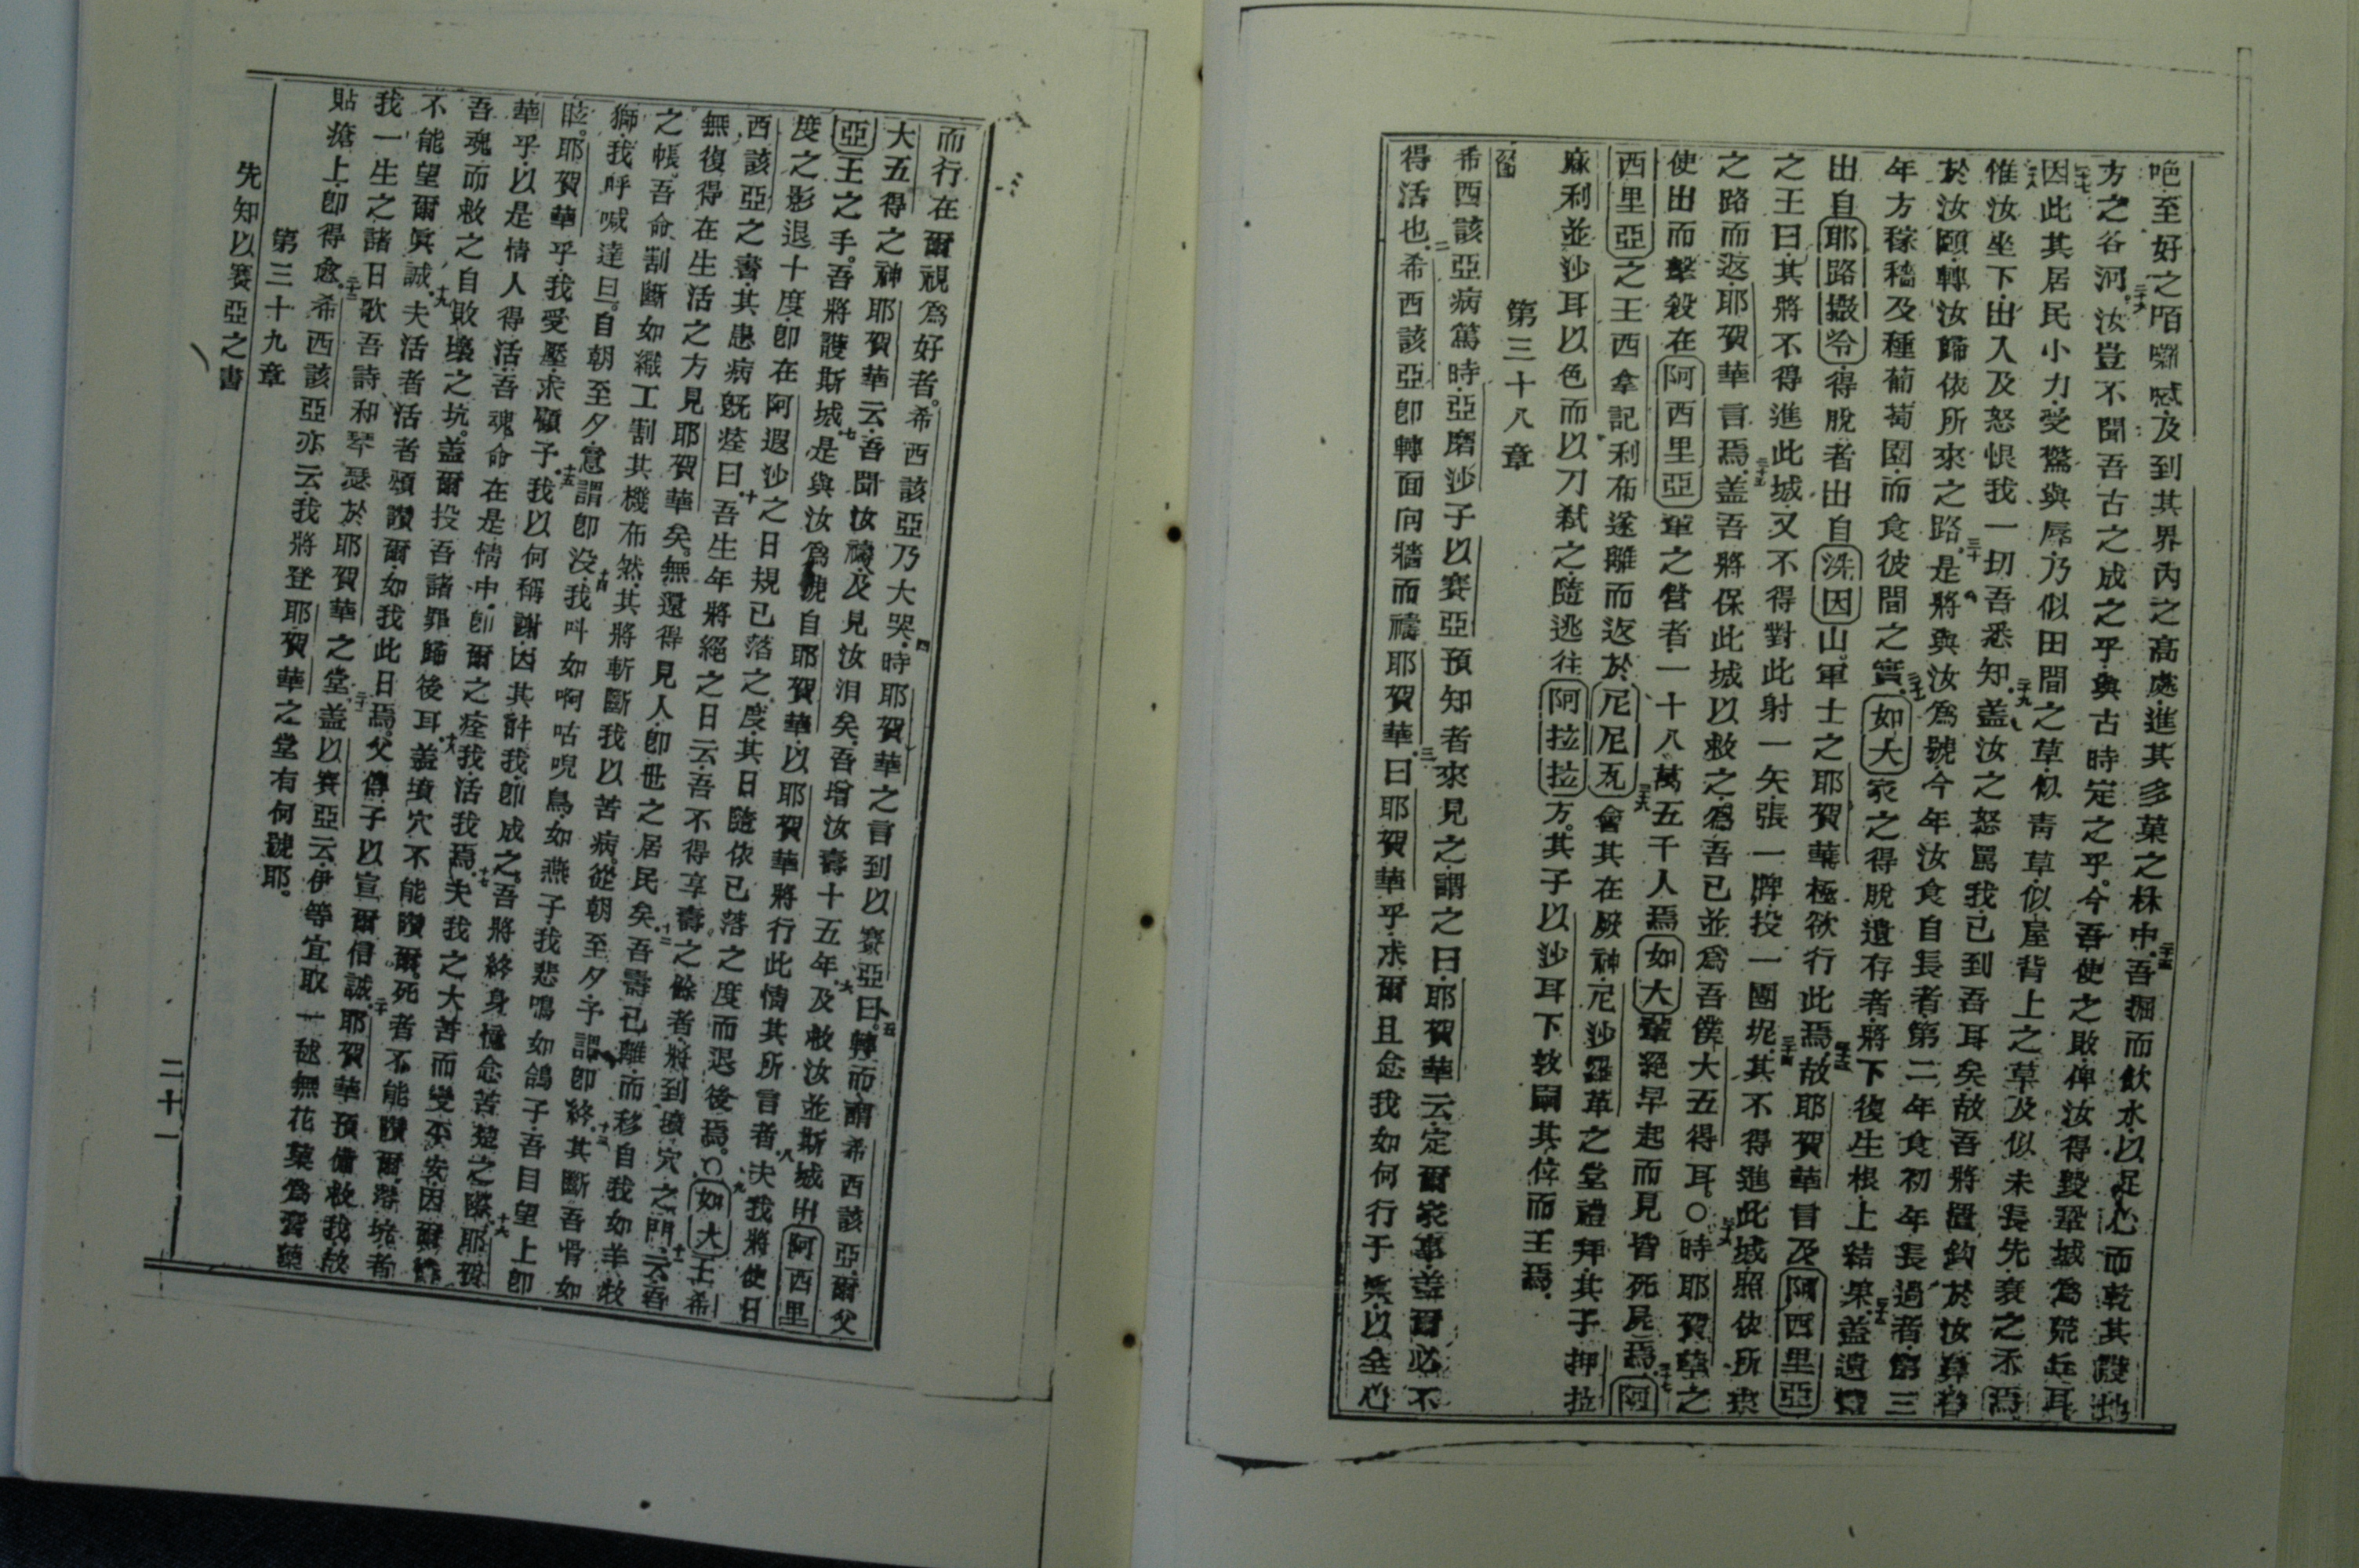 吧至好之栢啣咸及到其界內之高處進其多菓之林中二十五吾掘而飲水以足心而乾其谿地
方之谷河二十六汝豈不聞吾古之成之乎與古時定之乎今吾使之敗俾汝得毀鞏城爲荒丘耳
二十七因此其居民小力受驚與辱乃似田間之草似靑草似屋背上之草及似未長先衰之禾焉
二十八惟汝坐下出入及怒恨我一切吾悉知二十九盖汝之怒罵我已到吾耳矣故吾將置鈎於汝鼻
於汝頤轉汝歸依所來之路三十是將與汝爲號今年汝食自長者第二年食初年長過者第三
年方稼穡及種葡萄園而食彼間之實三十一如大家之得脫遺存者將下復生根上結果三十二盖遺
出自耶路撒冷得脫者出自洗因山軍士之耶賀華極欲行此焉三十三故耶賀華言及阿西里亞
之王曰其將不得進此城又不得對此射一矢張一牌投一團坭三十四其不得進此城照依所來
之路而返耶賀華言焉三十五盖吾將保此城以救之爲吾已並爲吾僕大五得耳○三十六時耶賀華之
使出而擊殺在阿西里亞軰之營者一十八萬五千人焉如大軰絕早起而見皆死屍焉三十七阿
西里亞之王西拿記利布遂離而返於尼尼瓦三十八會其在厥神尼沙羅革之堂禮拜其子押拉
麻利並沙耳以色而以刀弒之隨逃往阿拉拉方其子以沙耳下敦嗣其位而王焉
第三十八章
希西該亞病篤時亞磨沙子以賽亞預知者來見之謂之曰耶賀華云定爾家事盖爾必不
得活也二希西該亞卽轉面向牆而禱耶賀華三曰耶賀華乎求爾且念我如何行于爾以全心
而行在爾視爲好者希西該亞乃大哭四時耶賀華之言到以賽亞曰五轉而謂希西該亞爾父
大五得之神耶賀華云吾聞汝禱及見汝泪矣吾增汝壽十五年六及救汝並斯城出阿西里
亞王之手吾將護斯城七是與汝爲號自耶賀華以耶賀華將行此情其所言者八夫我將使日
度之影退十度卽在阿遐沙之日規已落之度其日隨依已落之度而退後焉○九如大王希
西該亞之書其患病旣痊曰十吾生年將絕之日云吾不得享壽之餘者將到墳穴之門十一云吾
無復得在生活之方見耶賀華矣無還得見人卽世之居民矣十二吾壽已離而移自我如羊牧
之帳吾命割斷如織工割其機布然其將斬斷我以苦病從朝至夕予謂卽終十三其斷吾骨如
獅我呼喊達旦自朝至夕意謂卽沒十四我叫如啊咕唲鳥如燕子我悲鳴如鴿子吾目望上卽
眩耶賀華乎我受壓求顧予十五我以何稱謝因其許我卽成之吾將終身憶念苦楚之際十六耶賀
華乎以是情人得活吾魂命在是情中卽爾之痊我活我焉十七夫我之大苦而變平安因爾
吾魂而救之自敗壞之坑盖爾投吾諸罪歸後耳十八盖墳穴不能讚爾死者不能讚爾落坑者
不能望爾眞誠十九夫活者活者頌讚爾如我此日焉父傳子以宣爾信誠二十耶賀華預備救我故
我一生之諸日歌吾詩和琴瑟於耶賀華之堂二十一盖以賽亞云伊等宜取一毬無花菓爲膏藥
貼瘡上卽得愈二十二希西該亞亦云我將登耶賀華之堂有何號耶
第三十九章
先知以賽亞之書
二十一